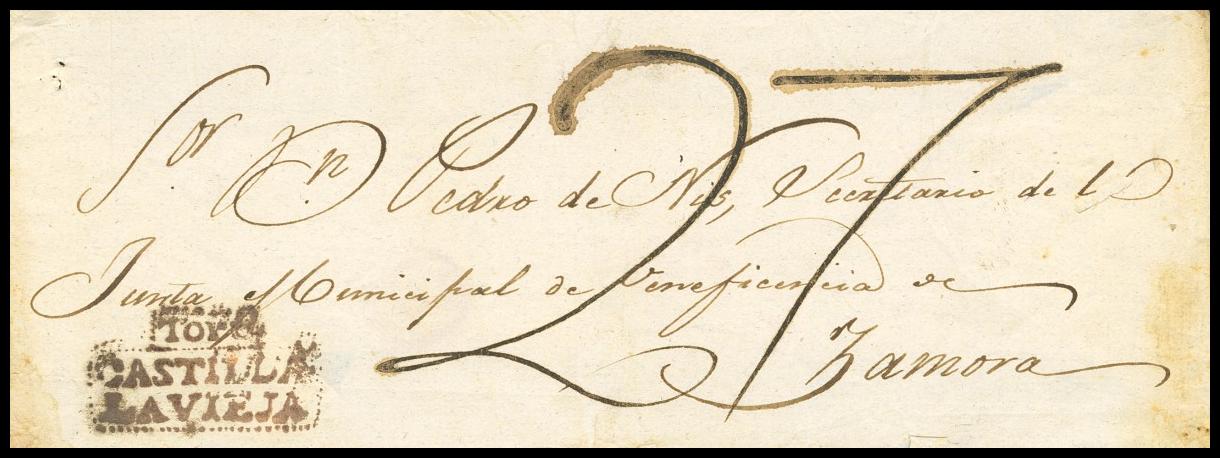 Sor Dn Pedro de Nis, Secretario de l
Junta Municipal de Veneficencia de
Zamora
27
TORO
CASTILLA
LA VIEJA